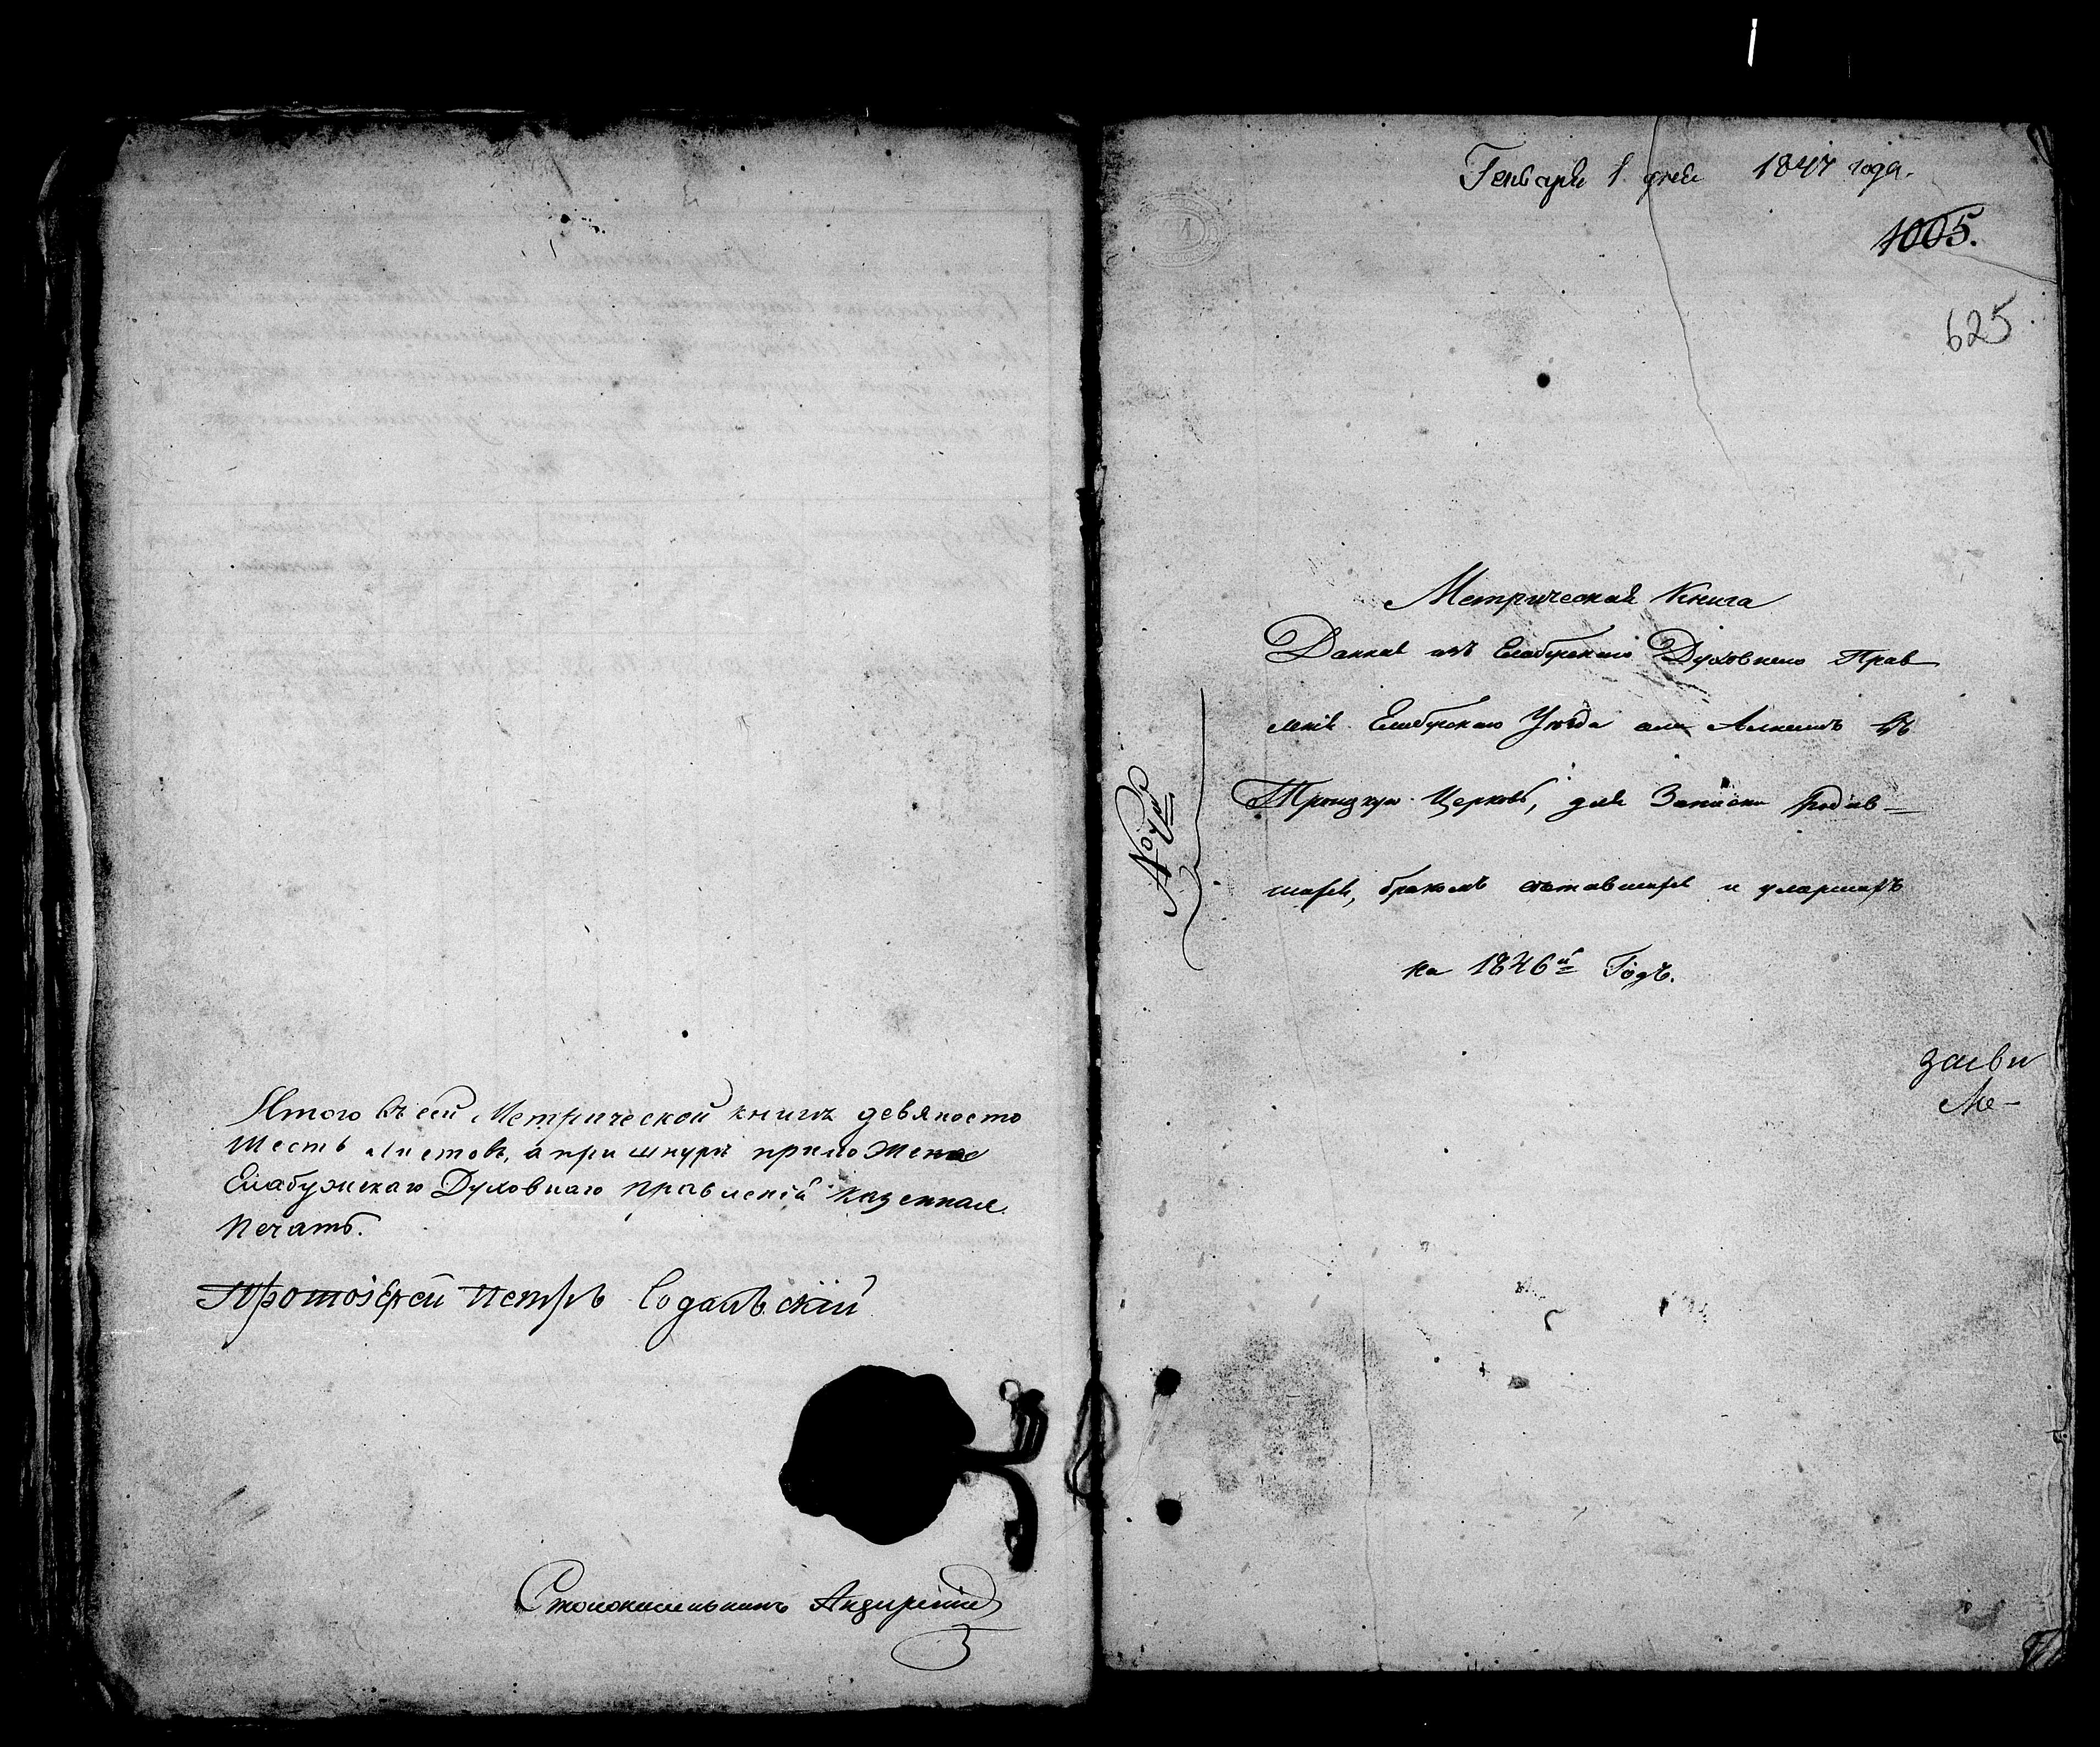 Итого въ сей Метрической книгѣ девяносто
шесть листовъ, а при шнурѣ приложена
Елабужскаго Духовнаго правленія казенная
печать.
Протоіерей Петръ
Столоначальникъ
Генваря 1 дня 1847 года.
1005.
625
Метрическая Книга
Данная изъ Елабужскаго Духовнаго Прав
ленія Елабужскаго Уѣзда села Алнашъ въ
Троицкую Церковь, для Записки родив-
шихся, бракомъ сочетавшихся и умершихъ
на 1846й Годъ.
засви
Ме-